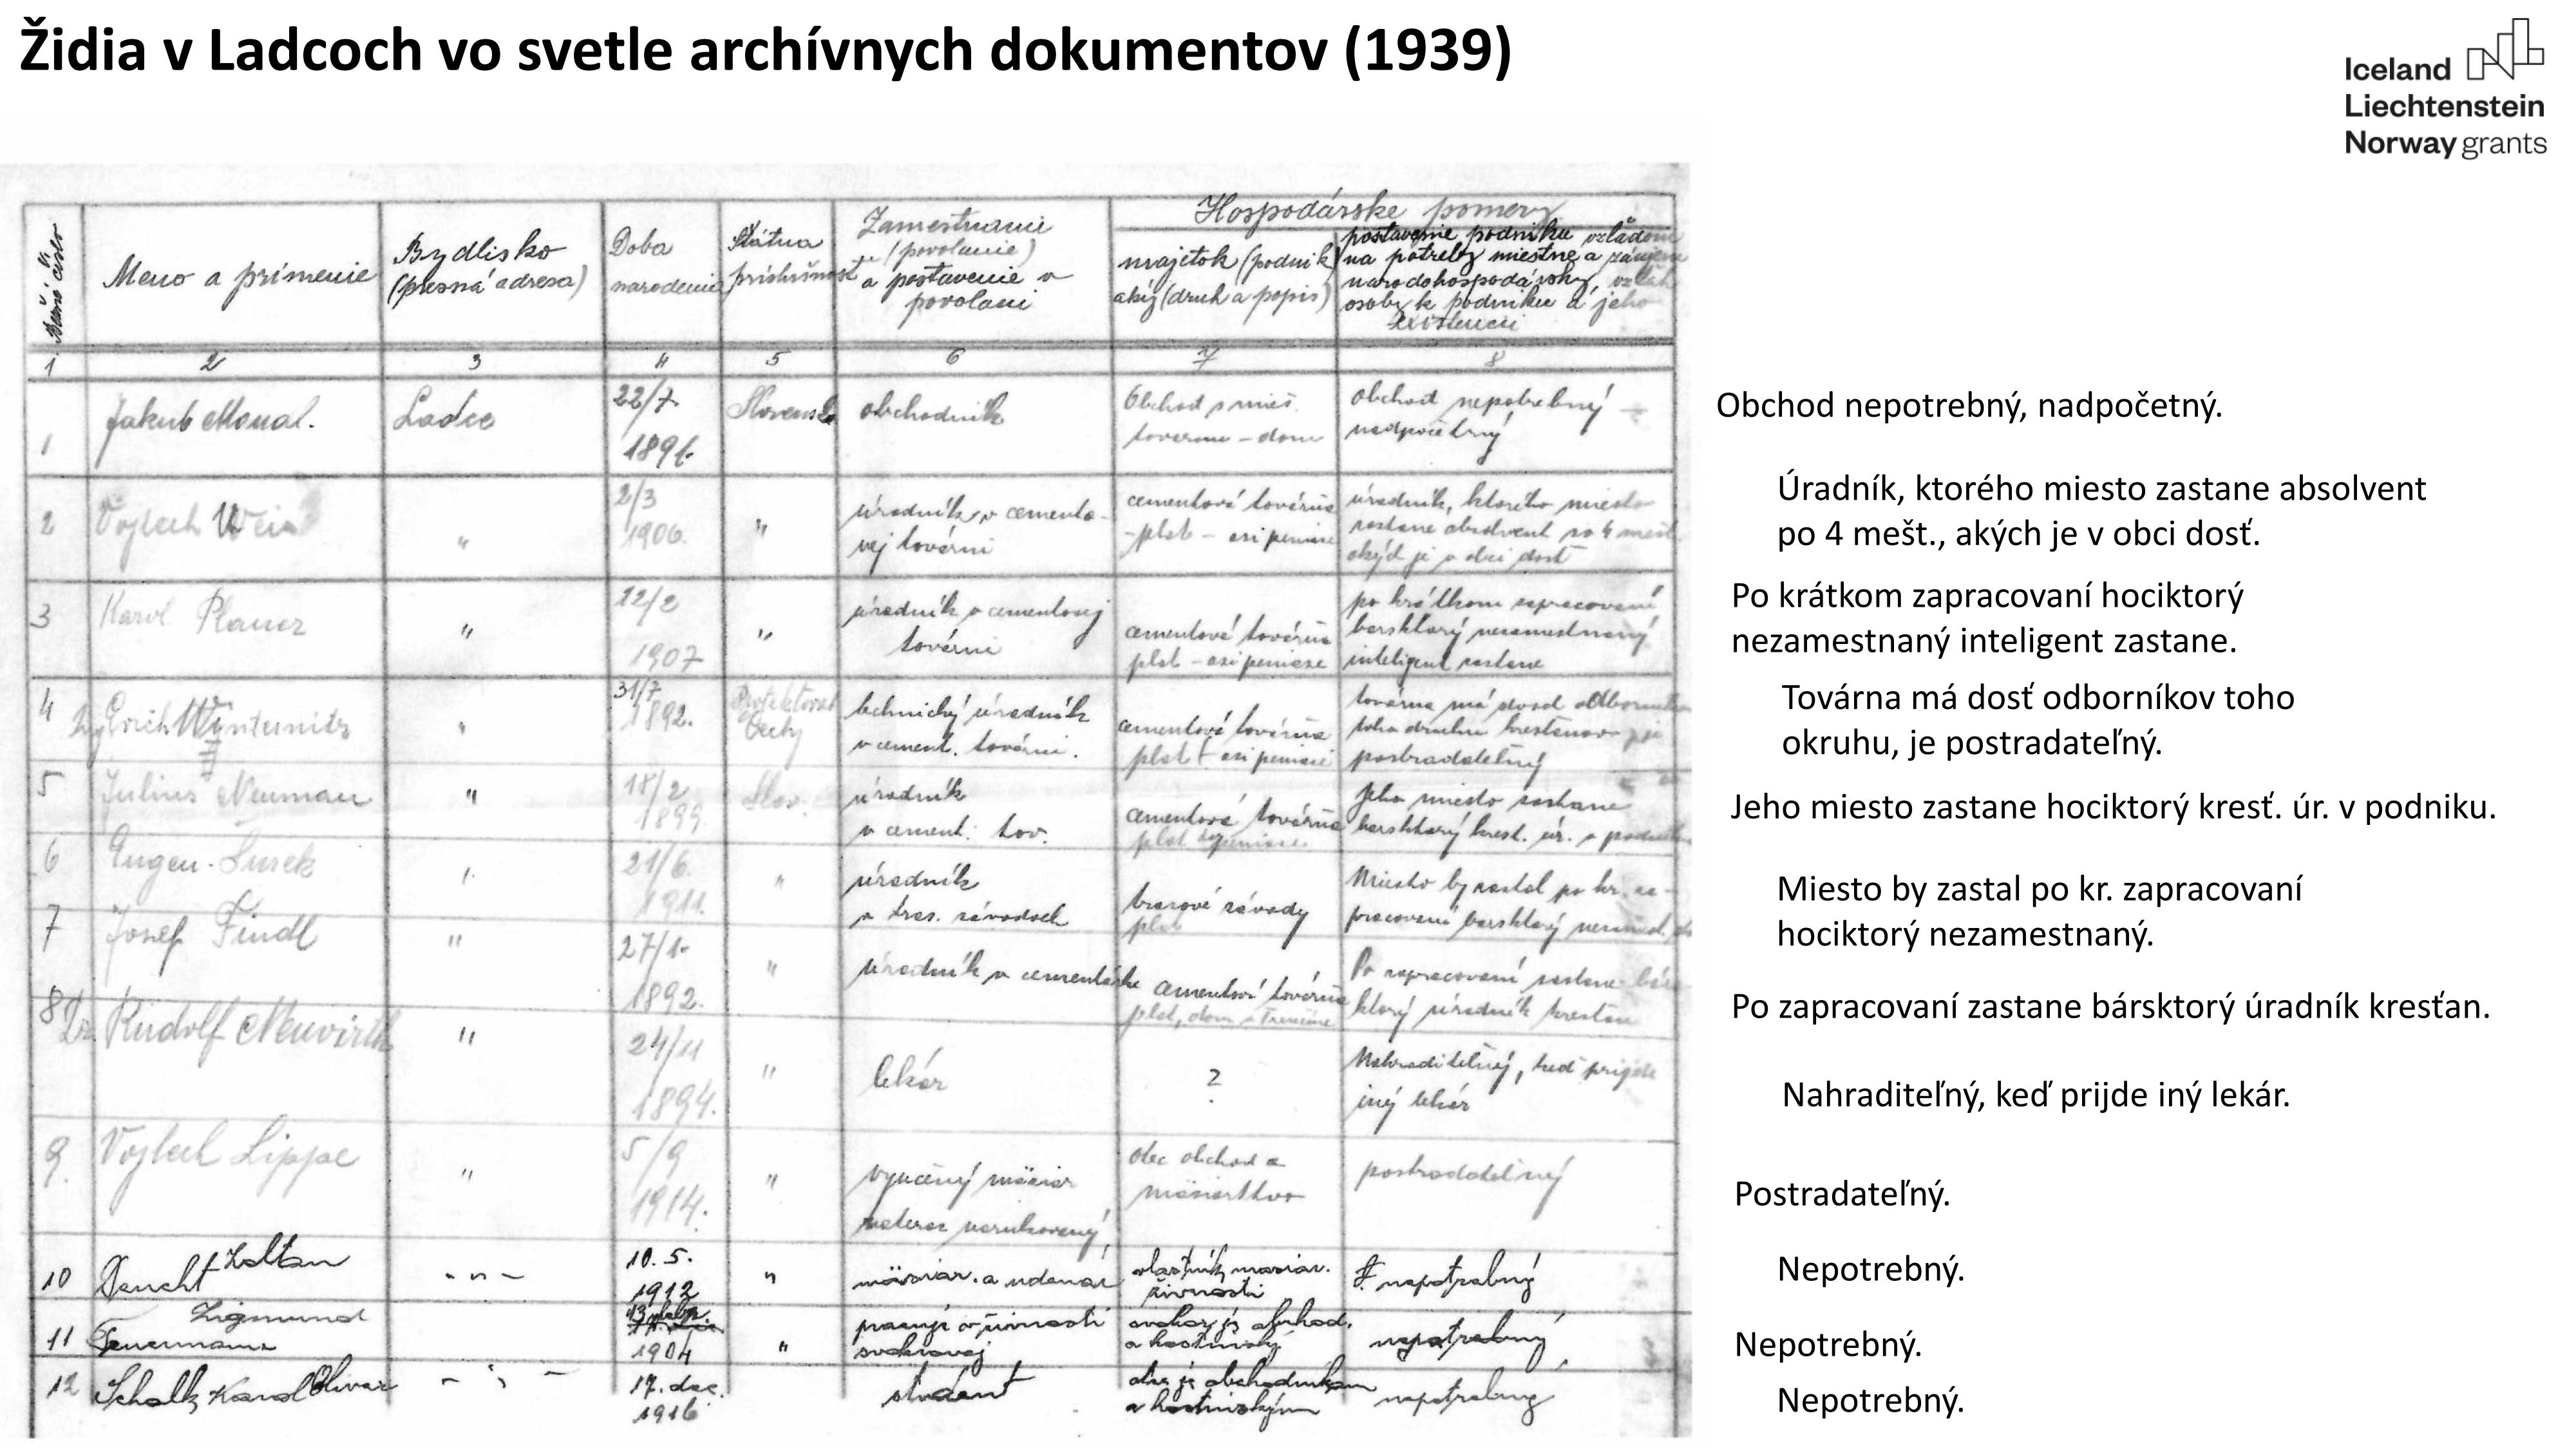 Židia v Ladcoch vo svetle archívnych dokumentov (1939)
Iceland
Liechtenstein
Norway grants
Hospodárske pomery
Bežné číslo
Meno a prímenie
Bydlisko
(presná adresa)
Doba
narodenia
Štátna
príslušnosť
Zamestnanie
(povolanie)
a postavenie v
povolaní
majetok (podnik)
aký (druh a popis)
postavenie podniku vzľadom
na potreby miestne a
narodohospodársky,
osoby k podniku a jeho
existencii
1 2 3 4 5 6 7 8
1 Jakub Ladce 22/7 1891 obchodník
Obchod s mieš. tovarom – dom
obchod nepotrebný –
nadpočetný
2 Vojtech 2/3 1906. "
úradník v cemento-
vej továrni
cementová továrňa
– plat –
úradník, ktorého miesto
zastane absolvent po 4 mešt.
dosť
3 Karol 12/2 1907 "
úradník v cementovej
továrni
cementová továrňa
plat –
po krátkom zapracovaní
barsktorý nezamestnaný
inteligent zastane
4 31/7 1892. Čechy
technický úradník
v cement. továrni.
cementová továrňa
plat
továrna má
postradateľný
5 Julius Neuman " 18/2 1899 Slov.
úradník
v cement. tov.
cementová továrňa
plat
Jeho miesto zastane
barsktorý krest. úr. v
6 Eugen 21/6. 1911.
úradník
závodoch
závody
plat
Miesto by zastal po kr. za-
pracovaní barsktorý
7 Josef Findl " 27/1 1892. "
úradník v cementárke
cementová továrňa
plat, dom v Trenčíne
Po zapracovaní zastane
ktorý úradník
8 Dr. Rudolf Neuvirth " 24/11 1894. "
lekár
?
Nahraditeľný, keď prijde
iný lekár
9. Vojtech Lippe " 5/9 1914. "
vyučený mäsiar
narukovaný
otec obchod a
mäsiarstvo
postradateľný
10 Zoltan 10. 5. 1912 "
mäsiar a udenár
vlastník mäsiar.
živnosti
nepotrebný
11 Zigmund 1904 "
pracuje v živnosti
svokrovej
svokor je obchod.
a hostinský
nepotrebný
12 Schalk Karol Olivar 17. dec. 1916
student
otec je obchodníkom
a hostinským
nepotrebný
Obchod nepotrebný, nadpočetný.
Úradník, ktorého miesto zastane absolvent
po 4 mešt., akých je v obci dosť.
Po krátkom zapracovaní hociktorý
nezamestnaný inteligent zastane.
Továrna má dosť odborníkov toho
okruhu, je postradateľný.
Jeho miesto zastane hociktorý kresť. úr. v podniku.
Miesto by zastal po kr. zapracovaní
hociktorý nezamestnaný.
Po zapracovaní zastane bársktorý úradník kresťan.
Nahraditeľný, keď prijde iný lekár.
Postradateľný.
Nepotrebný.
Nepotrebný.
Nepotrebný.